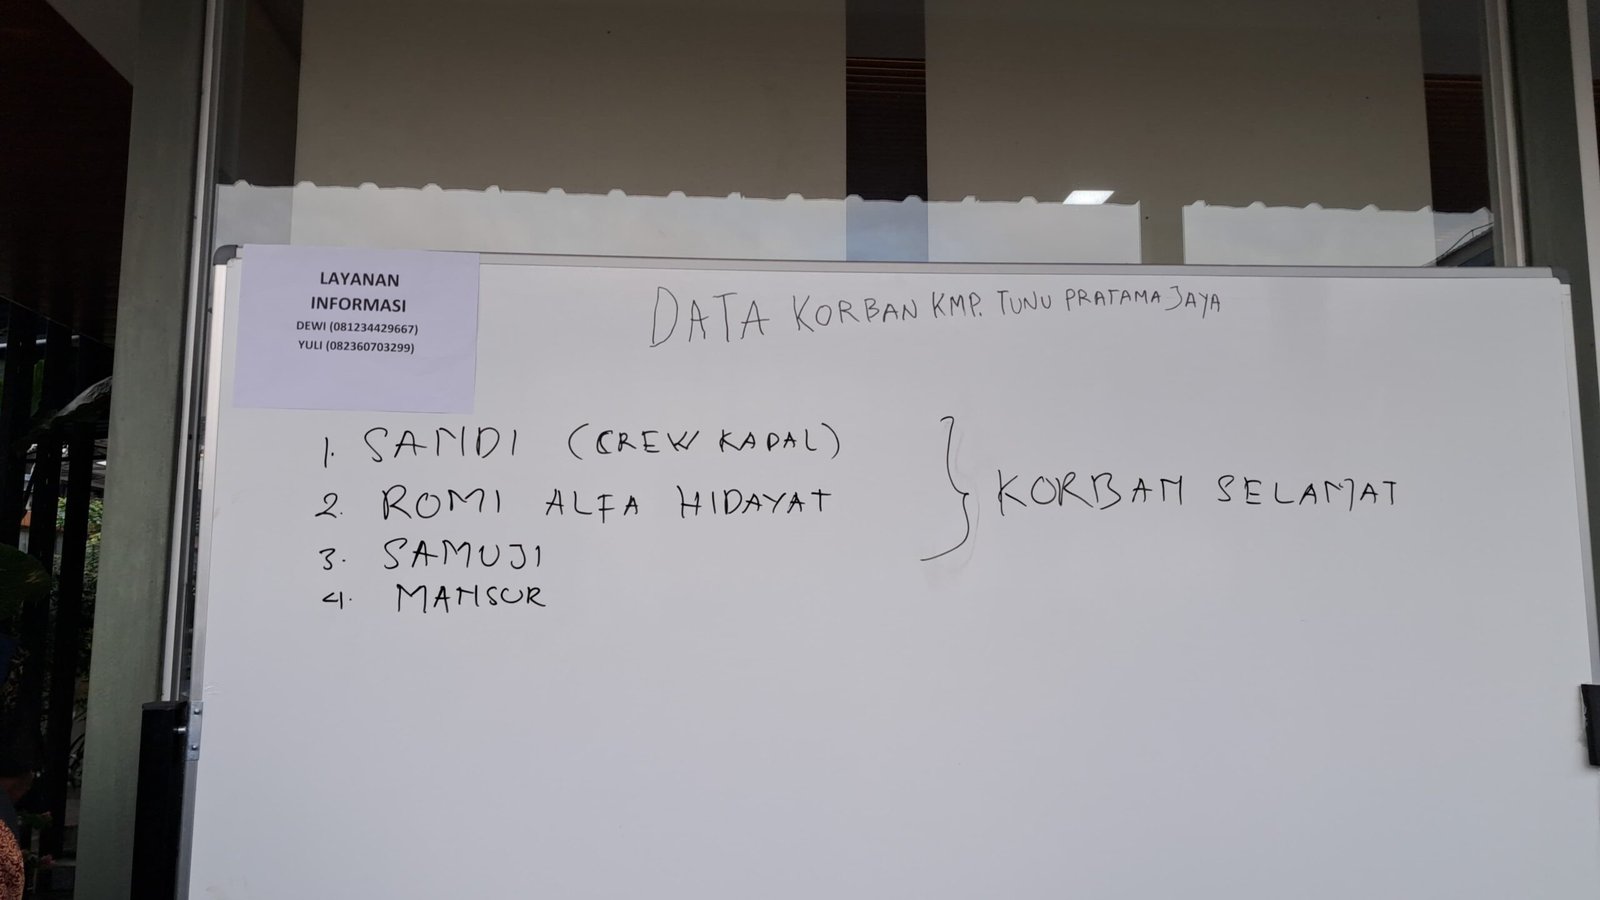 LAYANAN
INFORMASI
DEWI (081234429667)
YULI (082360703299)
DATA KORBAN KMP. TUNU PRATAMA JAYA
1. SANDI (CREW KAPAL)
2. ROMI ALFA HIDAYAT
3. SAMUJI
4. MANSUR
KORBAN SELAMAT